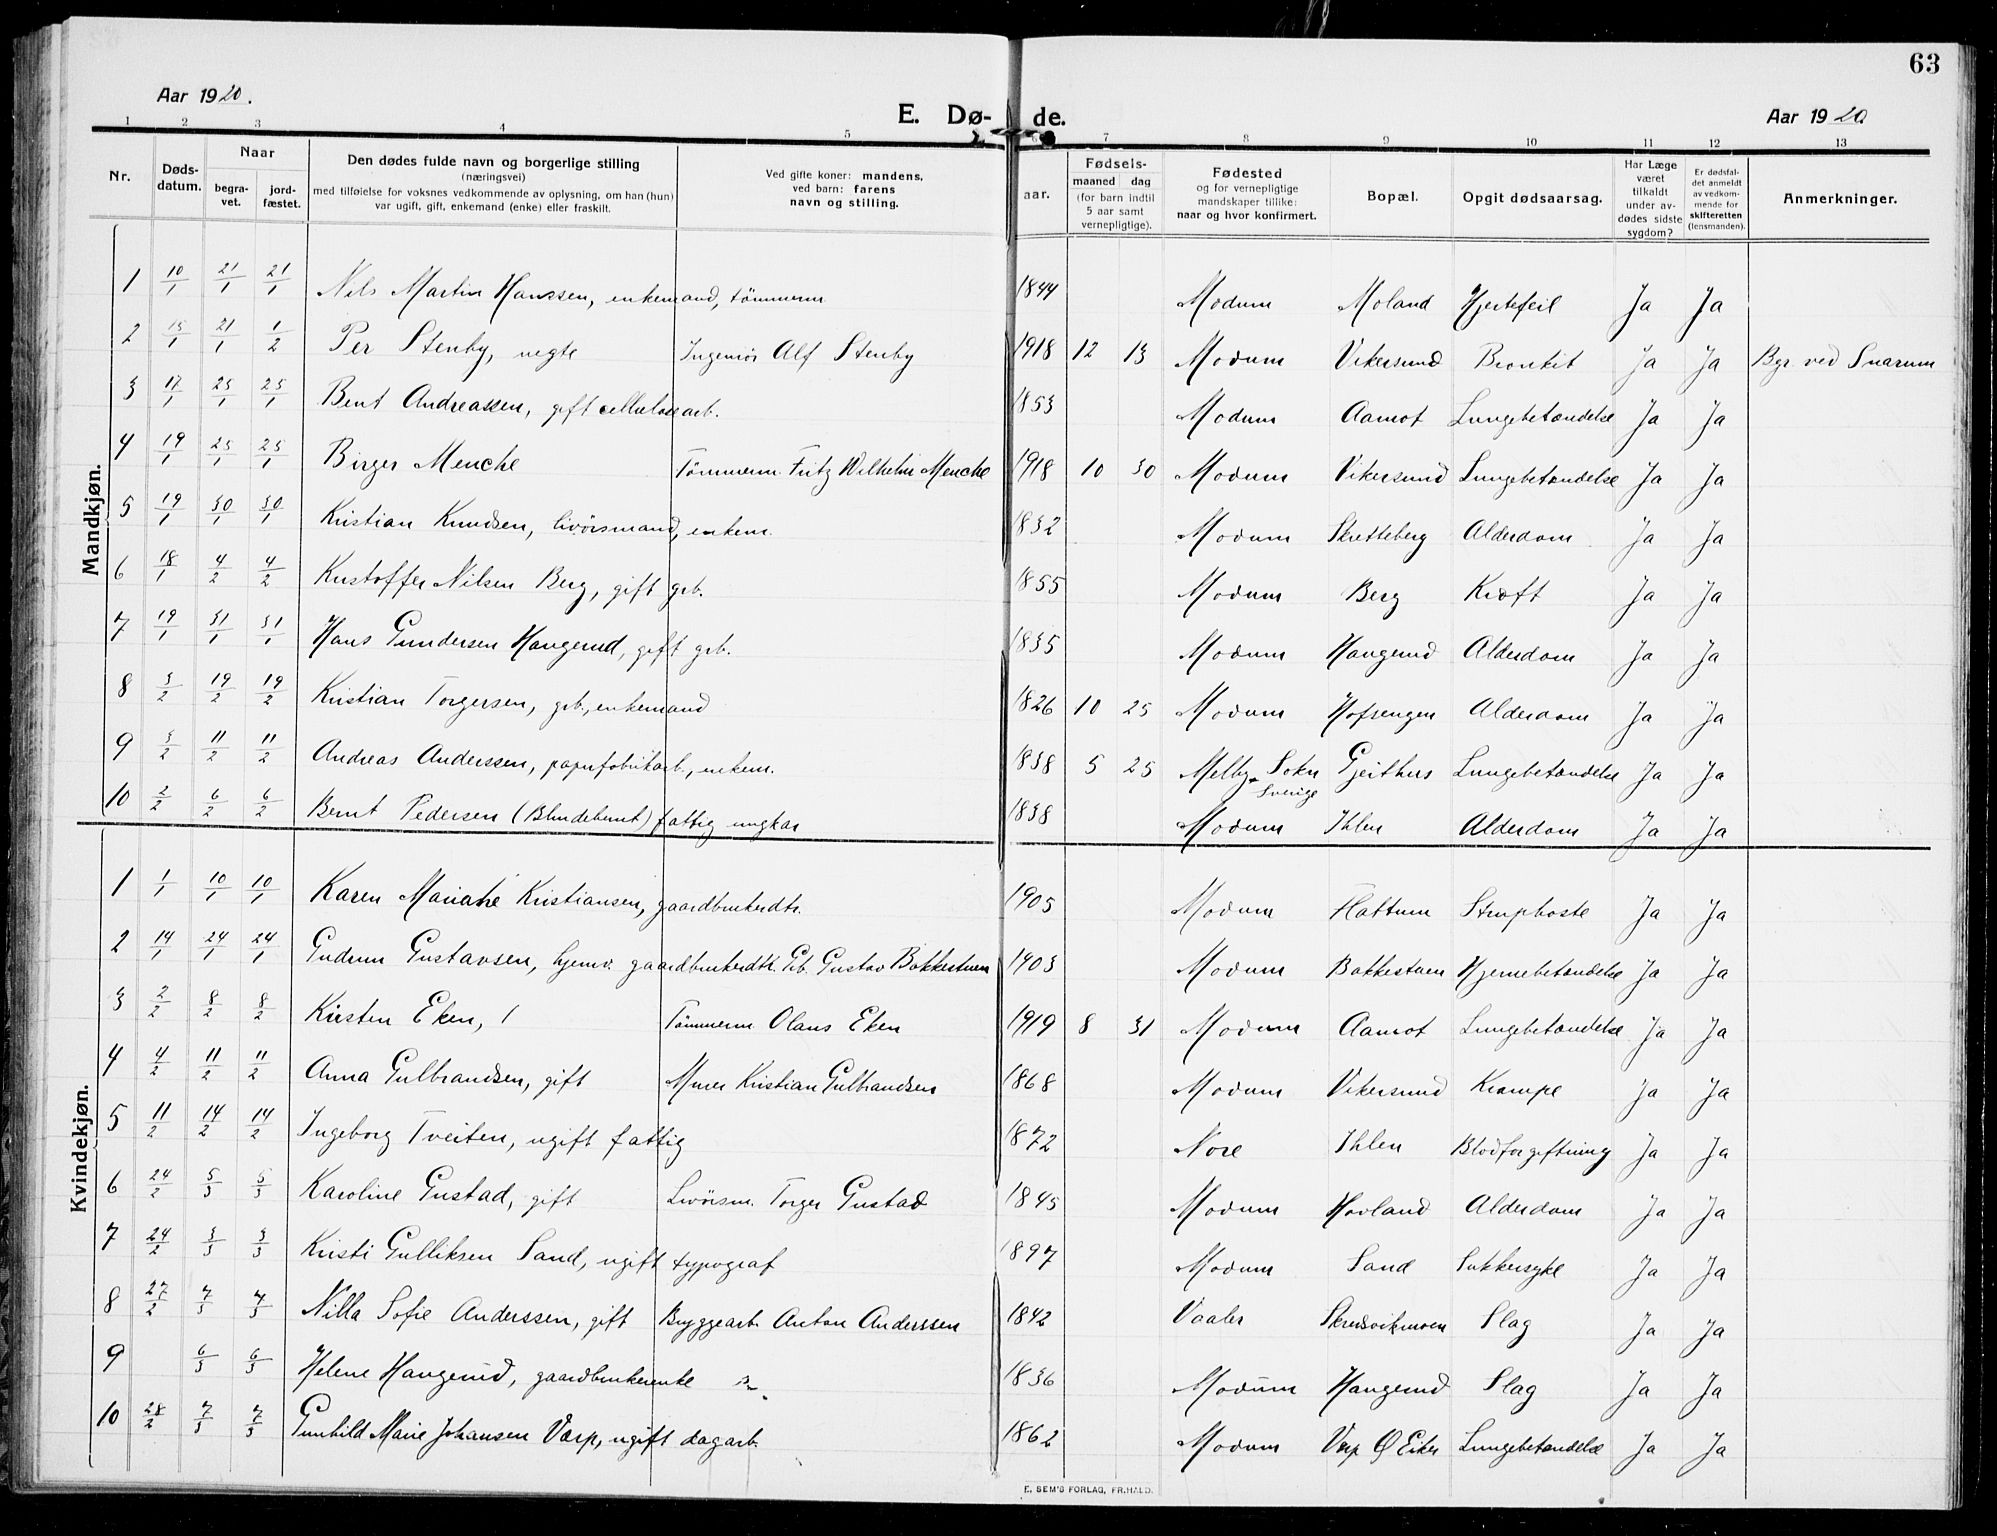 63
Aar 1920. E. Dø- de. Aar 1920
1 2 3 4 5 6 7 8 9 10 11 12 13
Nr. Døds-datum. Naar begra-vet. jord-fæstet. Den dødes fulde navn og borgerlige stilling (næringsvei) med tilføielse for voksnes vedkommende av oplysning, om han (hun) var ugift, gift, enkemand (enke) eller fraskilt. Ved gifte koner: mandens, ved barn: farens navn og stilling. aar. Fødsels- maaned dag (for barn indtil 5 aar samt vernepligtige). Fødested og for vernepligtige mandskaper tillike: naar og hvor konfirmert. Bopæl. Opgit dødsaarsag. Har Læge været tilkaldt under av-dødes sidste sygdom? Er dødsfal-det anmeldt av vedkom-mende for skifteretten (lensmanden). Anmerkninger.
Mandkjøn.
1 10/1 21/1 21/1 Nils Martin Hanssen, enkemand, tømmerm 1844 Modum Moland Hjertefeil Ja Ja
2 15/1 21/1 1/2 Per Stenby, uegte Ingeniør Alf Stenby 1918 12 13 Modum Vikersund Bronkit Ja Ja Bgr. ved Snarum
3 17/1 25/1 25/1 Bent Andreassen, gift cellulosearb. 1853 Modum Aamot Lungebetændelse Ja Ja
4 19/1 25/1 25/1 Birger Menche Tømmerm Fritz Wilhelm Menche 1918 10 30 Modum Vikersund Lungebetændelse Ja Ja
5 19/1 30/1 30/1 Kristian Knudsen, livørsmand, enkem. 1832 Modum Skretteberg Alderdom Ja Ja
6 18/1 4/2 4/2 Kristoffer Nilsen Berg, gift grb. 1855 Modum Berg Kræft Ja Ja
7 19/1 31/1 31/1 Hans Gundersen Haugerud, gift grb. 1835 Modum Haugerud Alderdom Ja Ja
8 3/2 19/2 19/2 Kristian Torgersen, grb., enkemand 1826 10 25 Modum Hofsengen Alderdom Ja Ja
9 3/2 11/2 11/2 Andreas Anderssen, papirfabrikarb., enkem. 1838 5 25 Melby Sokn Sverige Gjeithus Lungebetændelse Ja Ja
10 2/2 6/2 6/2 Bernt Pedersen (Blindebernt) fattig ungkar 1838 Modum Ihlen Alderdom Ja Ja
Kvindekjøn.
1 1/1 10/1 10/1 Karen Mariane Kristiansen, gaardbrukerdtr. 1905 Modum Flattum Struphoste Ja Ja
2 14/1 24/1 24/1 Gudrun Gustavsen, hjemv. gaardbrukerdtr. Grb. Gustav Bakkestuen 1903 Modum Bakkestuen Hjernebetændelse Ja Ja
3 2/2 8/2 8/2 Kirsten Eken, 1 Tømmerm Olaus Eken 1919 8 31 Modum Aamot Lungebetændelse Ja Ja
4 4/2 11/2 11/2 Anna Gulbrandsen, gift Murer Kristian Gulbrandsen 1868 Modum Vikersund Krampe Ja Ja
5 11/2 14/2 14/2 Ingeborg Tveiten, ugift fattig 1872 Nore Ihlen Blodforgiftning Ja Ja
6 24/2 5/3 5/3 Karoline Gustad, gift Livørsm. Torger Gustad 1845 Modum Hovland Alderdom Ja Ja
7 24/2 3/3 3/3 Kristi Gulliksen Sand, ugift typograf 1897 Modum Sand Sukkersyke Ja Ja
8 27/2 7/3 7/3 Nilla Sofie Anderssen, gift Bryggearb. Anton Anderssen 1842 Vaaler Skredsvikmoen Slag Ja Ja
9 6/3 6/3 Helene Haugerud, gaardbrukerenke 1836 Modum Haugerud Slag Ja Ja
10 28/2 7/3 7/3 Gunhild Marie Johansen Varp, ugift dagarb. 1862 Modum Varp Ø Eiker Lungebetændelse Ja Ja
E. SEM'S FORLAG, FR.HALD.